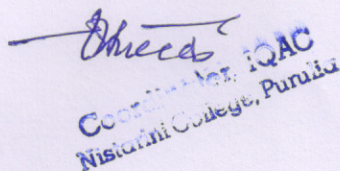 Coordinator, IQAC
Nistarini College, Purulia